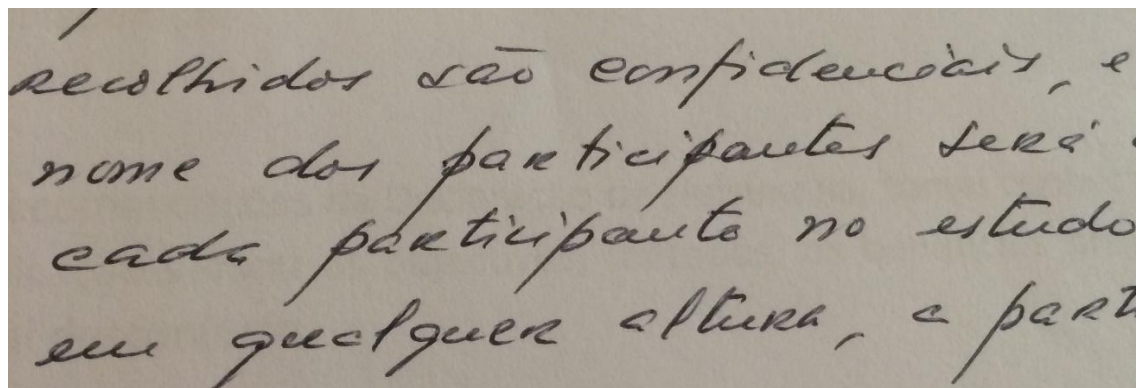 recolhidos são confidenciais, e
nome dos participantes será
cada participante no estudo
em qualquer altura, a part